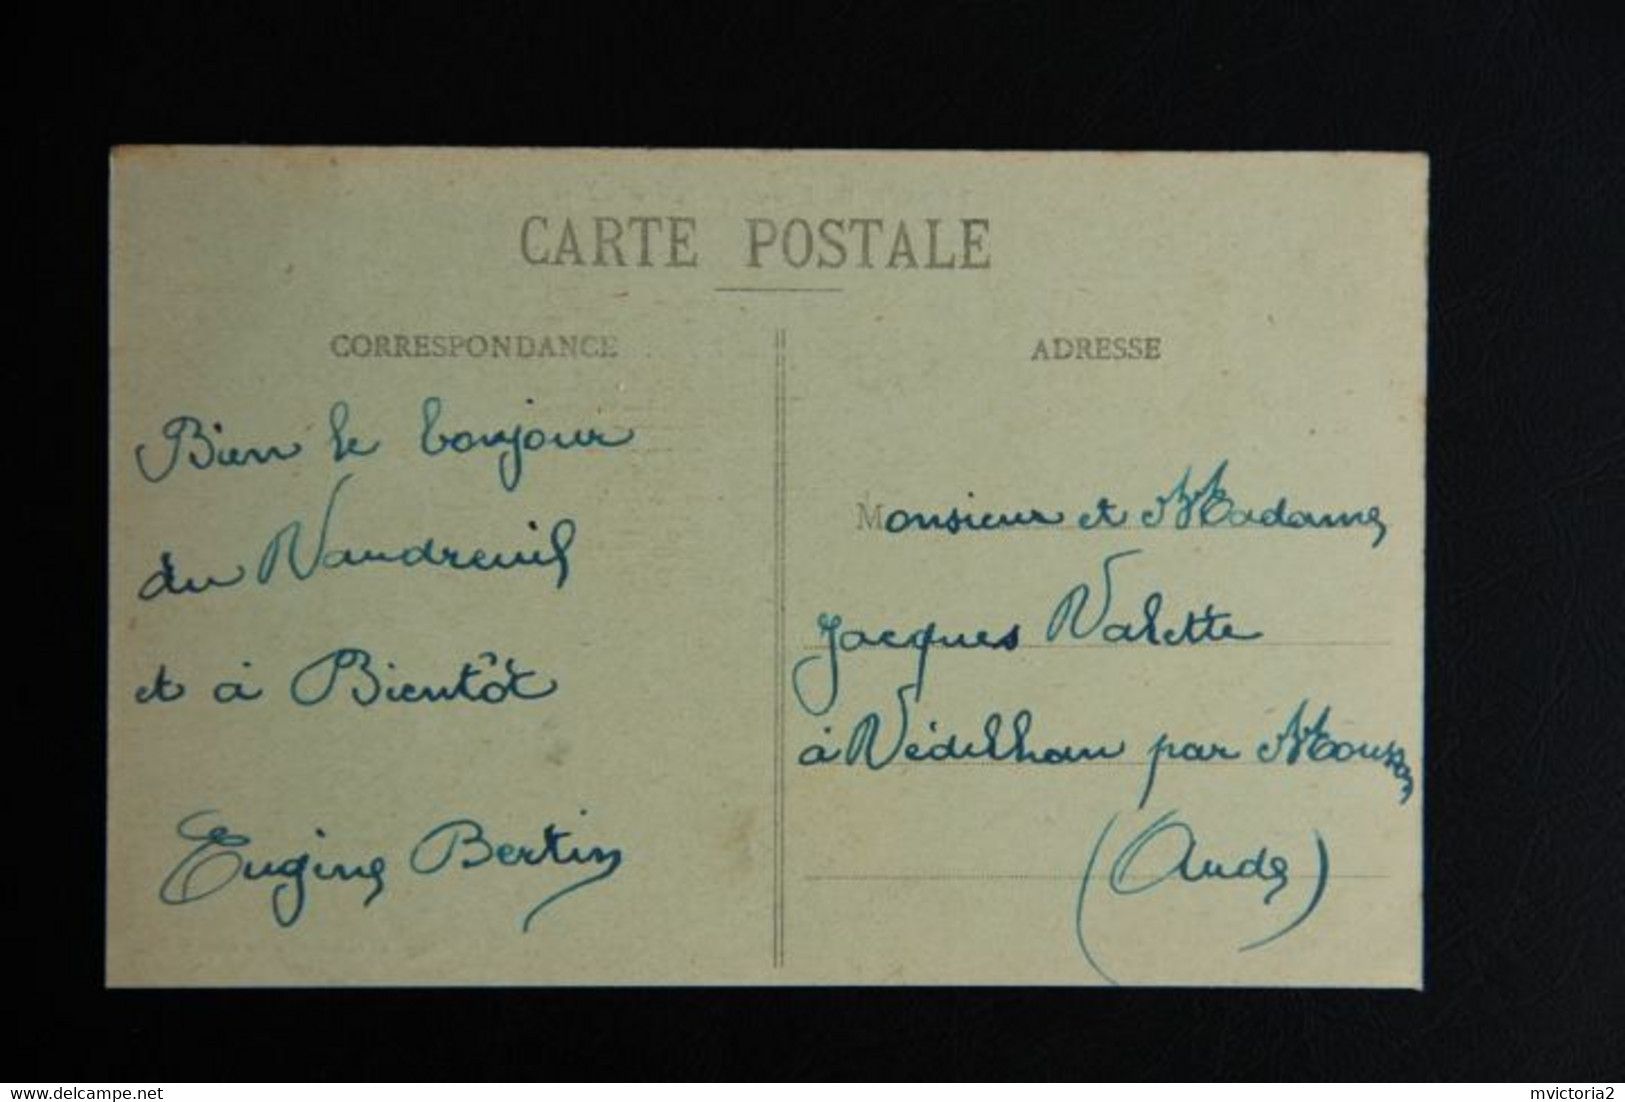 CARTE POSTALE
CORRESPONDANCE
Bien le bonjour
du Vaudreuil
et à Bientôt
Eugène Bertin
ADRESSE
Monsieur et Madame
Jacques Valette
à Védilhan par Moussan
(Aude)
www.delcampe.net
mvictoria2